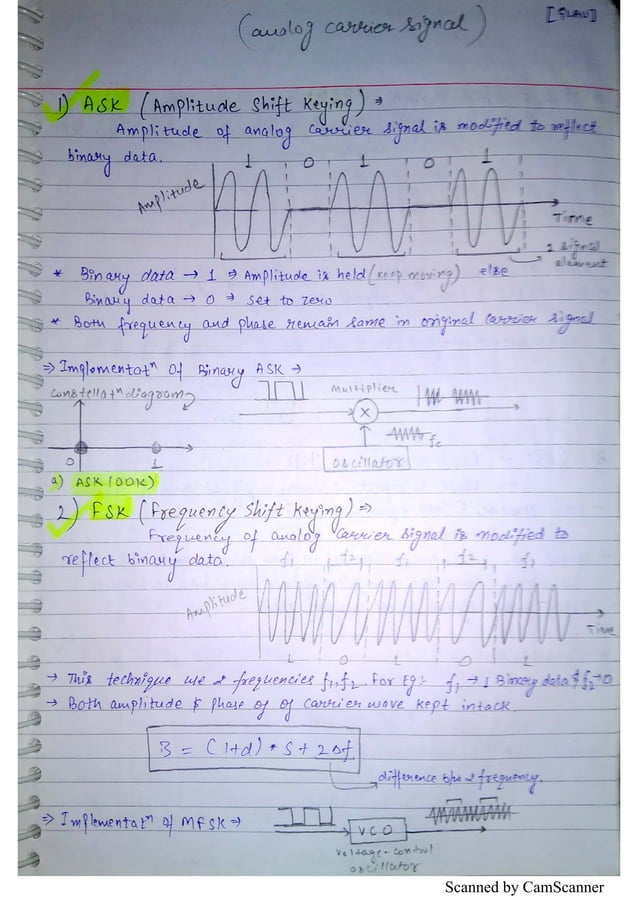 (analog carrier signal)
1) ASK (Amplitude Shift Keying) ⇒
Amplitude of analog carrier signal is modified to reflect
binary data.
1 0 1 0 1
Amplitude
Time
1 signal
element
* Binary data → 1 ⇒ Amplitude is held (keep moving) else
Binary data → 0 ⇒ set to zero
* Both frequency and phase remain same in original carrier signal
⇒ Implementatⁿ Of Binary ASK →
Constellatⁿ diagram
Multiplier
X
fc
Oscillator
0 1
a) ASK (OOK)
2) FSK (Frequency Shift Keying) ⇒
Frequency of analog carrier signal is modified to
reflect binary data.
f1 f2 f1 f2 f1
Amplitude
Time
1 0 1 0 1
→ This technique use 2 frequencies f1, f2. For Eg:- f1 → 1 Binary data & f2 → 0
→ Both amplitude & phase of of carrier wave kept intack.
B = (1+d) * S + 2Δf
difference b/w 2 frequency.
⇒ Implementatⁿ of MFSK →
VCO
voltage-control
oscillator
Scanned by CamScanner